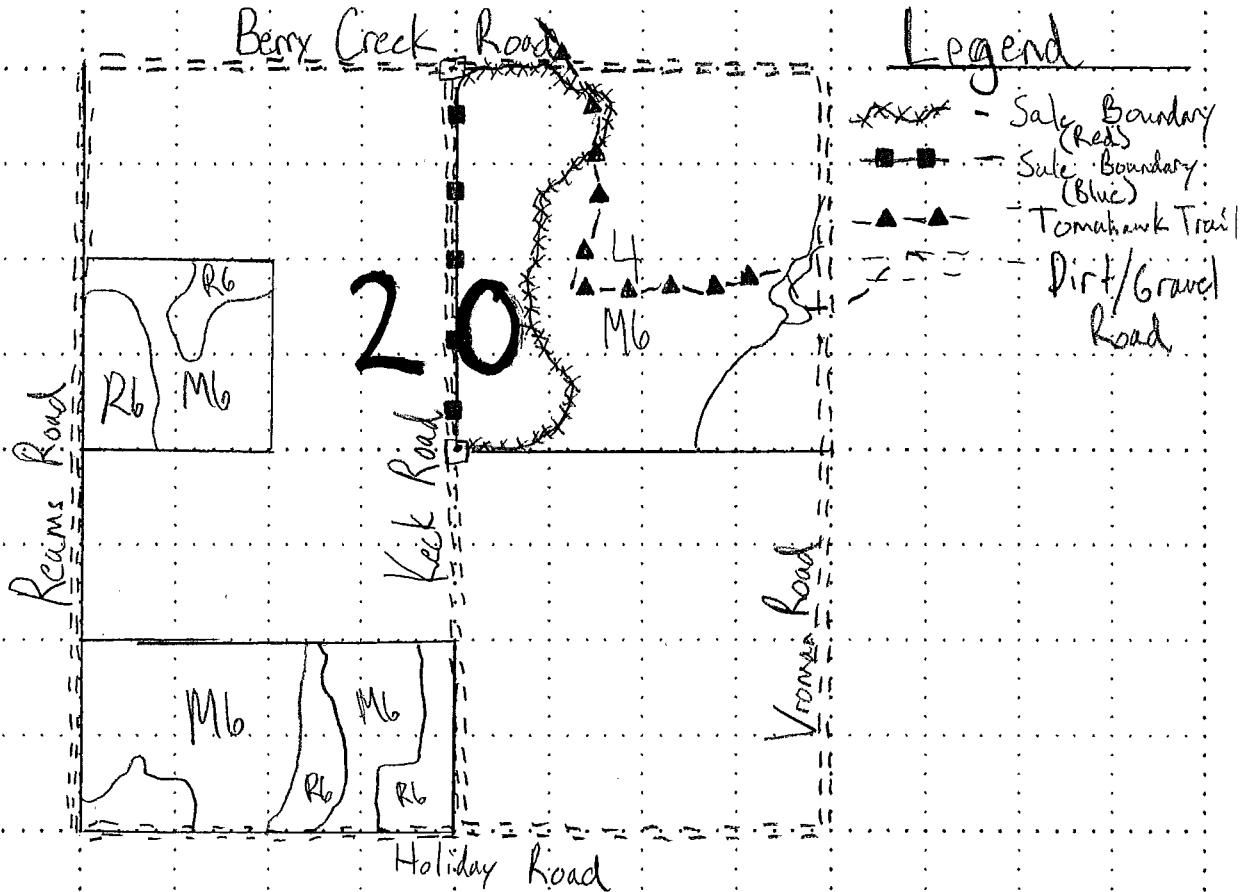 Berry Creek Road
Legend
- Sale Boundary
(Red)
- Sale Boundary
(Blue)
- Tomahawk Trail
- Dirt/Gravel
Road
R6
4
20
M6
R6
M6
Reams Road
Keck Road
Vroman Road
M6
M6
R6
R6
Holiday Road